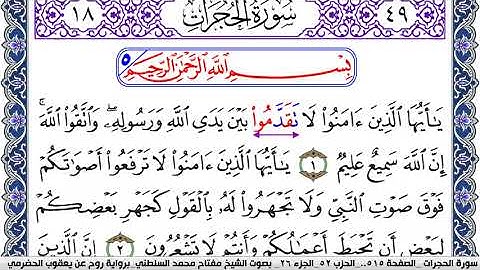 ٤٩ سُورَةُ الْحُجُرَاتِ ١٨
بِسْمِ اللَّهِ الرَّحْمَٰنِ الرَّحِيمِ ٥
يَٰٓأَيُّهَا الَّذِينَ ءَامَنُوا۟ لَا تَقَدَّمُوا۟ بَيْنَ يَدَيِ اللَّهِ وَرَسُولِهِۦ ۖ وَاتَّقُوا۟ اللَّهَ ۚ
إِنَّ اللَّهَ سَمِيعٌ عَلِيمٌ ١ يَٰٓأَيُّهَا الَّذِينَ ءَامَنُوا۟ لَا تَرْفَعُوٓا۟ أَصْوَٰتَكُمْ
فَوْقَ صَوْتِ النَّبِيِّ وَلَا تَجْهَرُوا۟ لَهُۥ بِالْقَوْلِ كَجَهْرِ بَعْضِكُمْ
لِبَعْضٍ أَن تَحْبَطَ أَعْمَٰلُكُمْ وَأَنتُمْ لَا تَشْعُرُونَ ٢ إِنَّ الَّذِينَ
سورة الحجرات_ الصفحة ٥١٥.. الحزب ٥٢_ الجزء ٢٦_ بصوت الشيخ مفتاح محمد السلطني_ برواية روح عن يعقوب الحضرمي